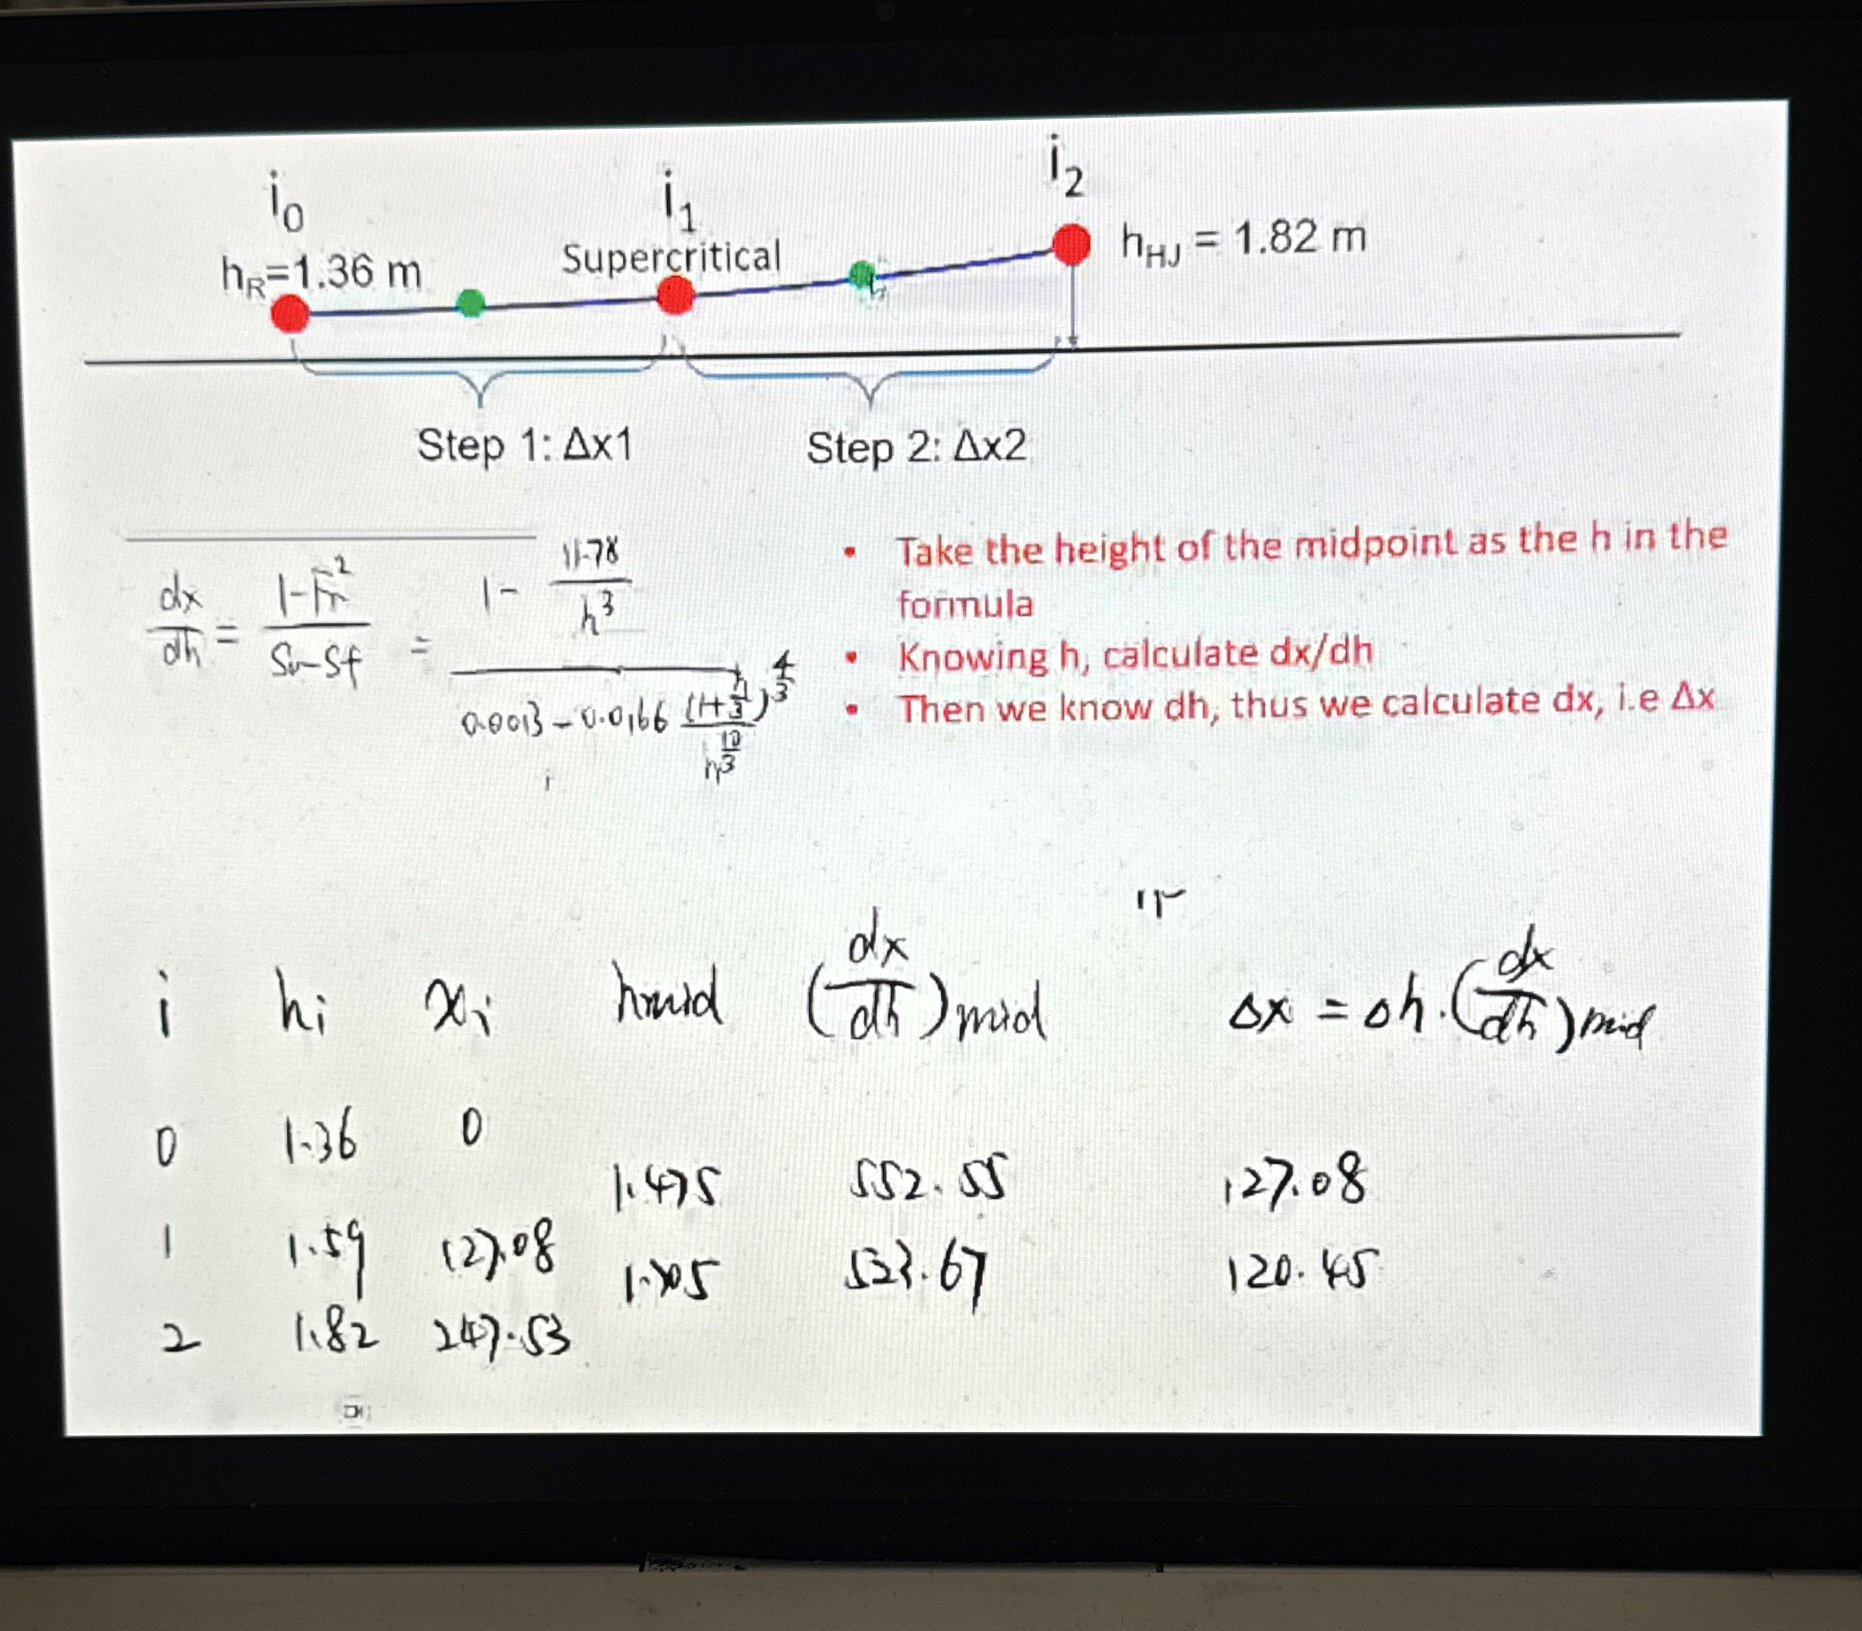 i₀ i₁ i₂
hR=1.36 m Supercritical hHJ = 1.82 m
Step 1: Δx1 Step 2: Δx2
dx/dh = (1-Fr²)/(S₀-Sf) = (1 - 11.78/h³)/(0.0013 - 0.0166 (1+h/3)^(4/3)/h^(10/3))
• Take the height of the midpoint as the h in the
formula
• Knowing h, calculate dx/dh
• Then we know dh, thus we calculate dx, i.e Δx
i hi xi hmid (dx/dh)mid Δx = Δh.(dx/dh)mid
0 1.36 0
1.475 552.55 127.08
1 1.59 127.08
1.705 523.67 120.45
2 1.82 247.53